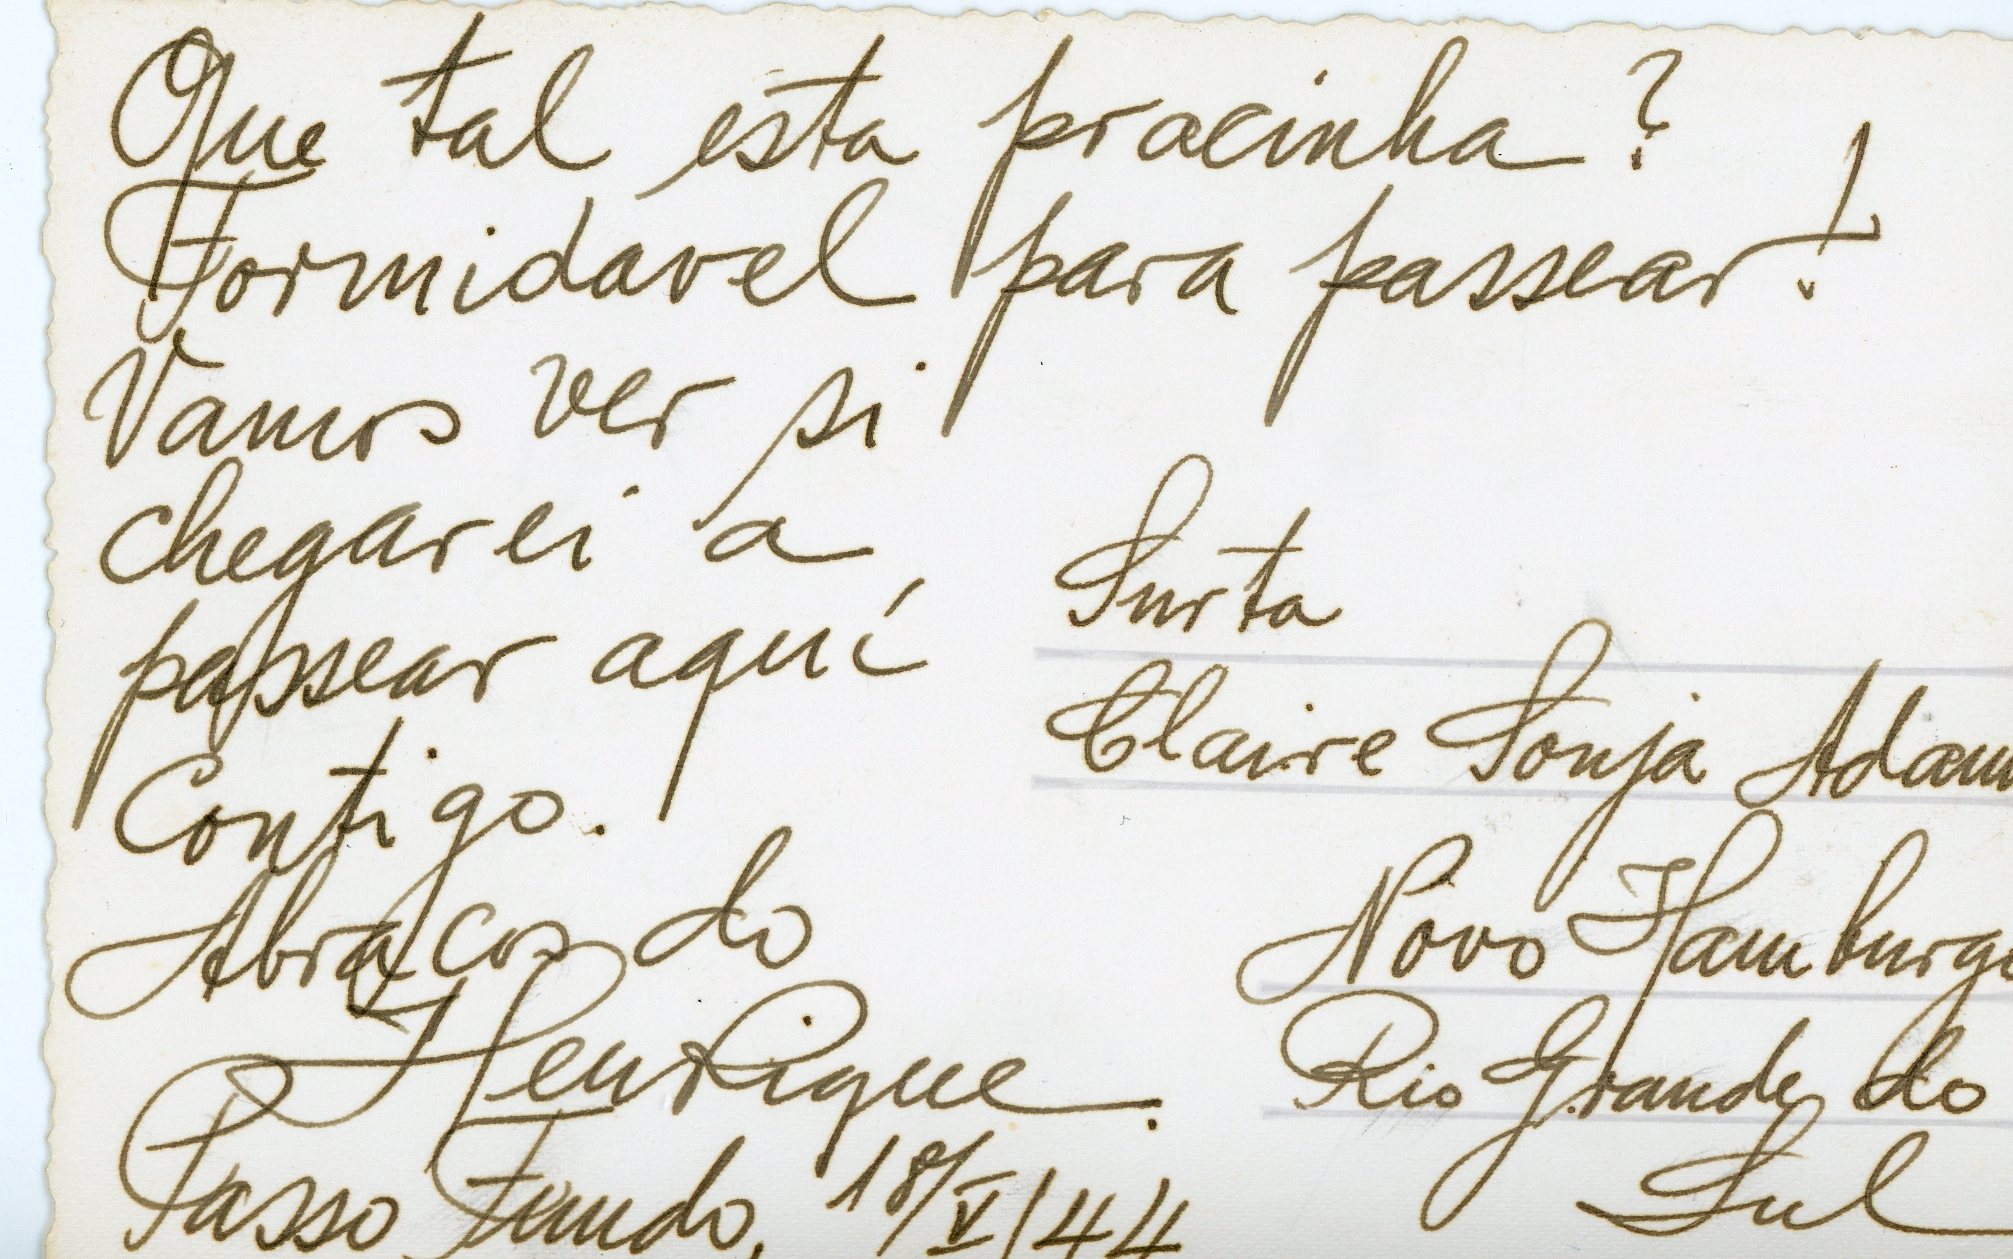 Que tal esta pracinha?
Formidavel para passear!
Vamos ver si
chegarei a
passear aquí
contigo.
Abraços do
Henrique.
Passo Fundo, 18/V/44
Snrta
Claire Sonja Adam
Novo Hamburgo
Rio Grande do
Sul